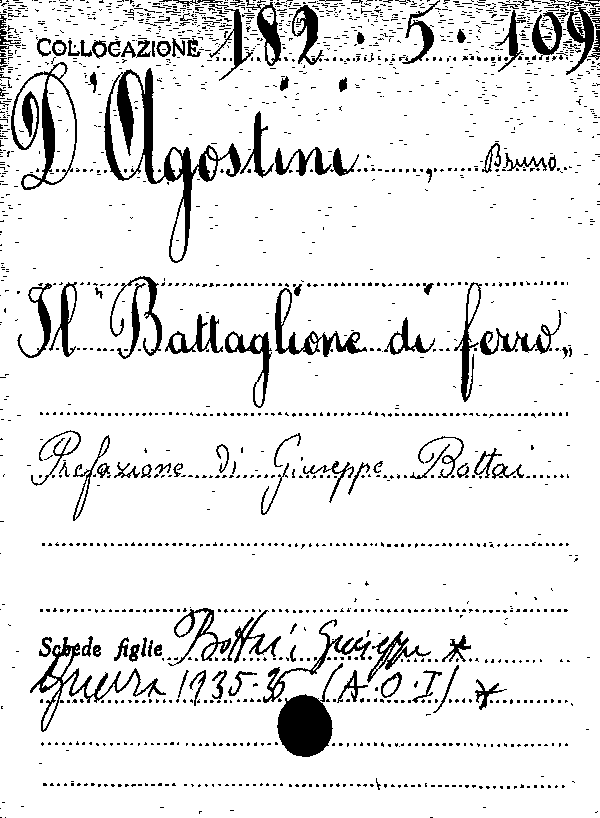 COLLOCAZIONE 182.5.109
D'Agostini, Bruno
Il "Battaglione di ferro„
Prefazione di Giuseppe Bottai
Schede figlie Bottai Giuseppe *
Guerra 1935-36 (A.O.I) *